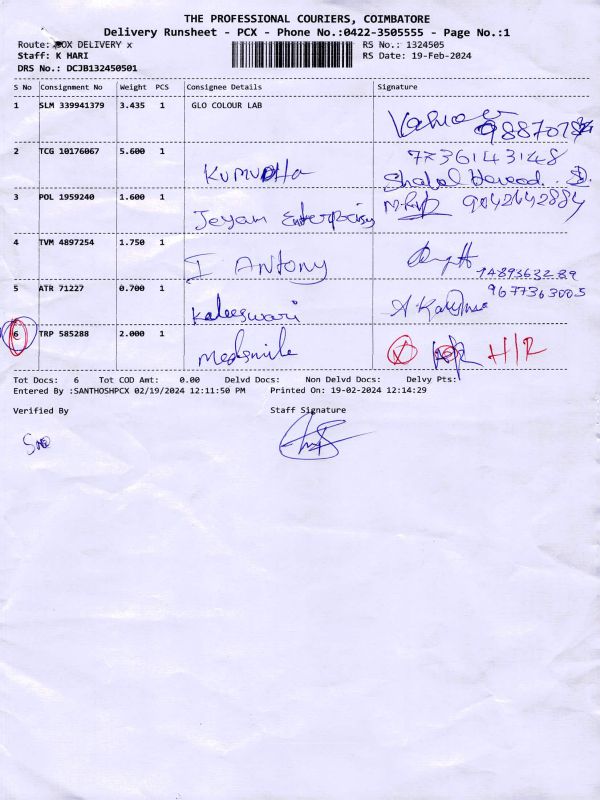 THE PROFESSIONAL COURIERS, COIMBATORE
Delivery Runsheet - PCX - Phone No.:0422-3505555 - Page No.:1
Route: BOX DELIVERY x RS No.: 1324505
Staff: K HARI RS Date: 19-Feb-2024
DRS No.: DCJB132450501
S No Consignment No Weight PCS Consignee Details Signature
1 SLM 339941379 3.435 1 GLO COLOUR LAB
2 TCG 10176067 5.600 1 7736143148
Kumudha
3 POL 1959240 1.600 1 9042642884
Jeyam Enterprises
4 TVM 4897254 1.750 1
I Antony
5 ATR 71227 0.700 1 9677363005
Kaleeswari
6 TRP 585288 2.000 1 H/R
Medsmile
Tot Docs: 6 Tot COD Amt: 0.00 Delvd Docs: Non Delvd Docs: Delvy Pts:
Entered By :SANTHOSHPCX 02/19/2024 12:11:50 PM Printed On: 19-02-2024 12:14:29
Verified By Staff Signature